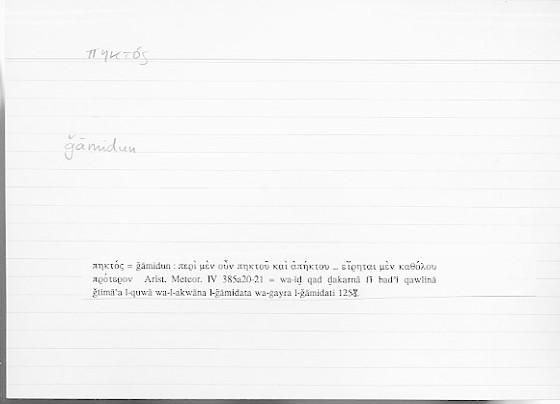 πηκτός
ǧāmidun
πηκτός = ǧāmidun : περὶ μὲν οὖν πηκτοῦ καὶ ἀπήκτου ... εἴρηται μὲν καθόλου
πρότερον Arist. Meteor. IV 385a20-21 = wa-iḏ qad ḏakarnā fī bad'i qawlinā
ǧtimā'a l-quwā wa-l-akwāna l-ǧāmidata wa-ġayra l-ǧāmidati